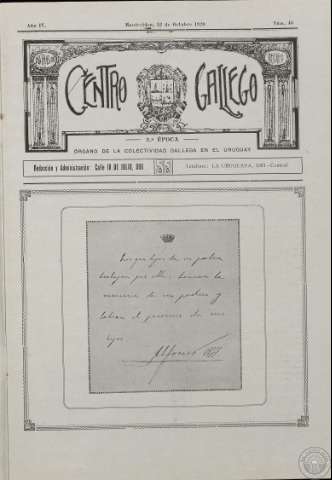 Año IV. Montevideo, 22 de Octubre 1920 Núm. 46
CENTRO GALLEGO
2.ª ÉPOCA
ÓRGANO DE LA COLECTIVIDAD GALLEGA EN EL URUGUAY
Redacción y Administración: Calle 18 DE JULIO, Teléfono: LA URUGUAYA, Central
Los que lejos de su patria
trabajan por ella, honran la
memoria de sus padres y
labran el porvenir de sus
hijos
Alfonso XIII